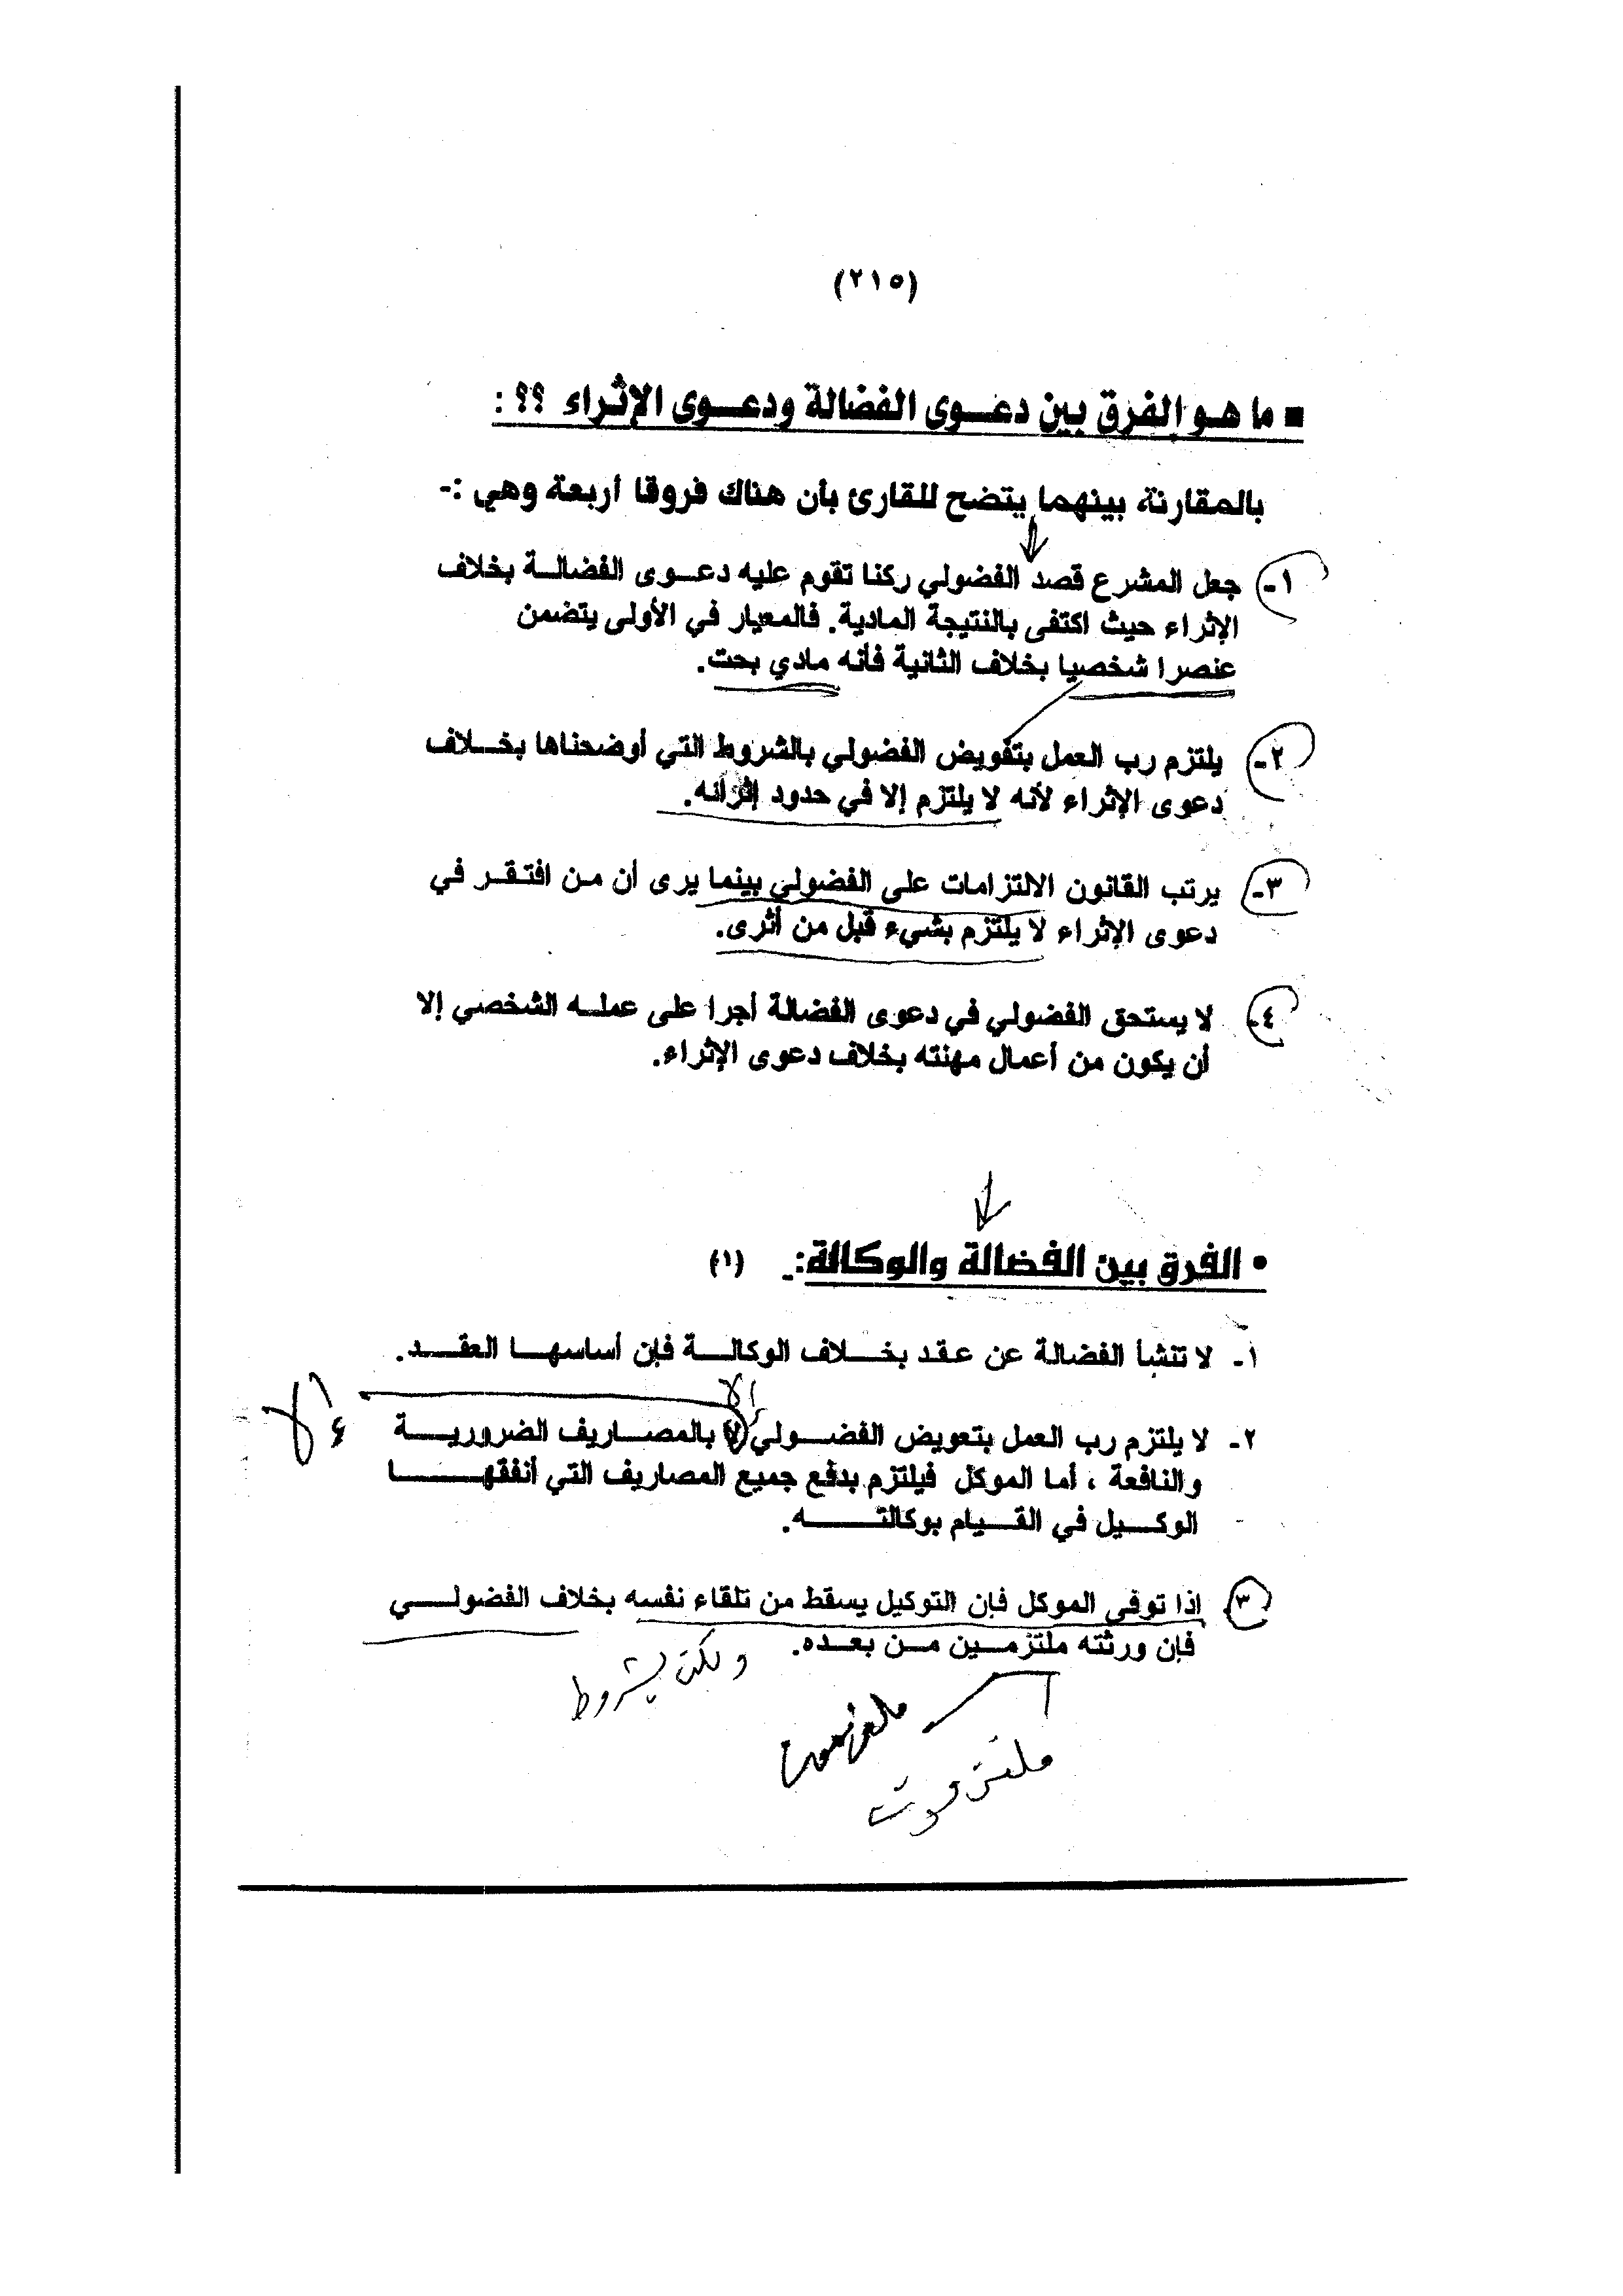 (٢١٥)
▪ ما هـو الفرق بين دعـوى الفضالة ودعـوى الإثـراء ؟؟ :
بالمقارنة بينهما يتضح للقارئ بأن هناك فروقا أربعة وهي :-
١- جعل المشرع قصد الفضولي ركنا تقوم عليه دعـوى الفضالـة بخلاف
الإثراء حيث اكتفى بالنتيجة المادية. فالمعيار في الأولى يتضمن
عنصرا شخصيا بخلاف الثانية فأنه مادي بحت.
٢- يلتزم رب العمل بتفويض الفضولي بالشروط التي أوضحناها بخـلاف
دعوى الإثراء لأنه لا يلتزم إلا في حدود إثرائه.
٣- يرتب القانون الالتزامات على الفضولي بينما يرى أن مـن افتـقـر في
دعوى الإثراء لا يلتزم بشيء قبل من أثرى.
٤- لا يستحق الفضولي في دعوى الفضالة أجرا على عملـه الشخصي إلا
أن يكون من أعمال مهنته بخلاف دعوى الإثراء.
• الفرق بين الفضالة والوكالة:ـ (١)
١- لا تنشأ الفضالة عن عـقـد بخـلاف الوكالـة فإن أساسهـا العقـد.
إلا
٢- لا يلتزم رب العمل بتعويض الفضـولي لا بالمصـاريف الضروريـة
إلا
والنافعة ، أما الموكل فيلتزم بدفع جميع المصاريف التي أنفقهـا
الوكـيل في القـيام بوكالتـه.
٣ إذا توفي الموكل فإن التوكيل يسقط من تلقاء نفسه بخلاف الفضولـي
فإن ورثته ملتزمـين مـن بعـده.
ولكن بشروط
ملتزمون